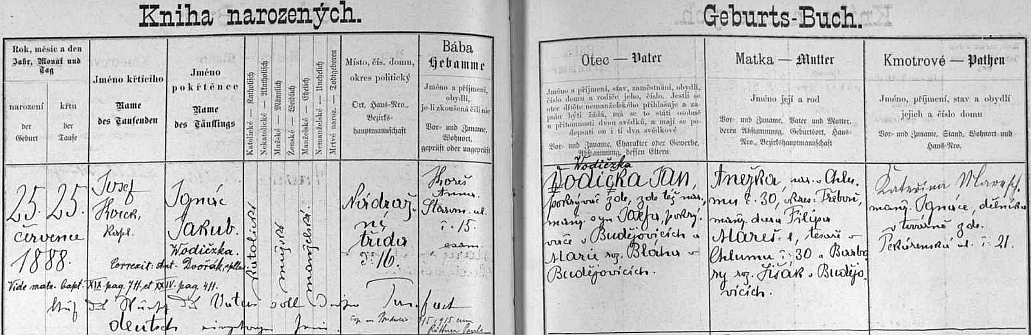 Kniha narozených.
Geburts-Buch.
Rok, měsíc a den
Jahr, Monat und
Tag
narození
der
Geburt
křtu
der
Taufe
Jméno křtícího
Name
des Taufenden
Jméno
pokřtěnce
Name
des Täuflings
Katolické — Katholisch
Nekatolické — Akatholisch
Mužské — Männlich
Ženské — Weiblich
Manželské — Ehelich
Nemanželské — Unehelich
Mrtvě naroz. — Todtgeboren
Místo, čís. domu,
okres politický
Ort, Haus-Nro.,
Bezirks-
hauptmannschaft
Bába
Hebamme
Jméno a příjmení,
obydlí,
je-li zkoušená čili nic
Vor- und Zuname,
Wohnort,
geprüft oder ungeprüft
Otec — Vater
Jméno a příjmení, zaměstnání, obydlí,
číslo domu a rodiče jeho, číslo. Jestli se
otec dítěte nemanželského přihlašuje a za-
psán býti žádá, má se to státi osobně
u přítomnosti dvou svědků, a mají se po-
depsati on i ti dva svědkové
Vor- und Zuname, Charakter oder Gewerbe,
Abstammung, dessen Eltern
Matka — Mutter
Jméno její a rod
Vor- und Zuname, Vater und Mutter,
deren Abstammung, Geburtsort, Haus-
Nro., Bezirkshauptmannschaft
Kmotrové — Pathen
Jméno, příjmení, stav a obydlí
jejich a číslo domu
Vor- und Zuname, Stand, Wohnort und
Haus-Nro.
25. 25.
července
1888.
Josef
Kapl.
Ignác
Jakub.
Wodiczka.
Correxit: Ant. Dvořák, kpllan
Vide matr. bapt. XIX pag. 711. et XXIV. pag. 411.
katolické
mužské
manželské
Nádraž-
ní
třída
č. 16.
Anna
č. 15.
exam.
Wodiczka
Vodička Jan,
pokrývač zde, zde též nar.
manž. syn Jakuba, pokrý-
vače v Budějovicích a
Marie roz. Bláha v
Budějovicích.
Anežka, nar. v Chlu-
mu č. 30, okres Třeboň,
manž. dcera Filipa
Mareše, tesaře v
Chlumu č. 30 a Barbo-
ry roz. Šišák z Budějo-
vicích.
Kateřina
manž. Ignáce, dělníka
v továrně zde.
Pekárenská ul. č. 21.
des
soll
deutsch